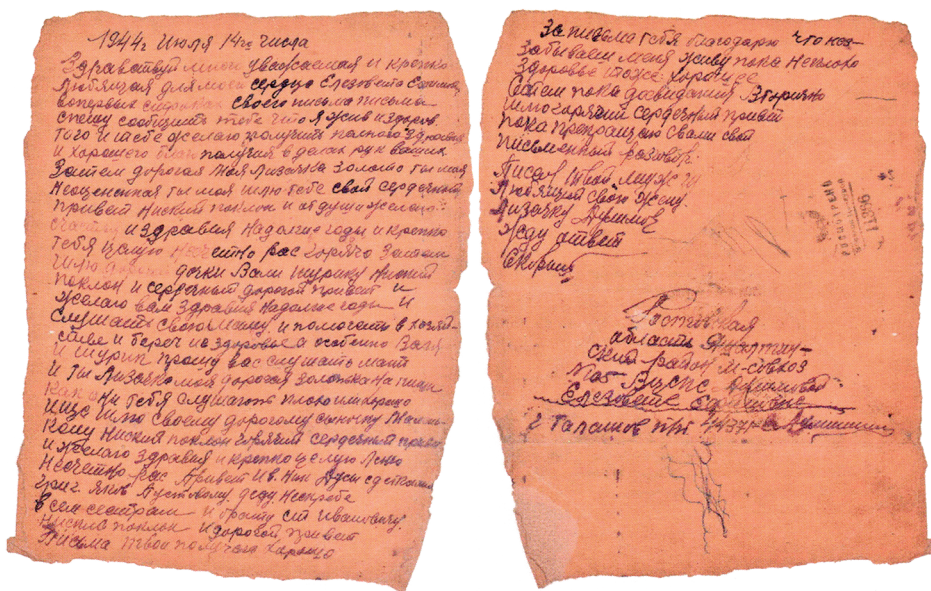 1944г Июля 14го числа
Здравствуй много уважаемая и крепко
Любящая для моего сердца Елезовета
впервых строках своего письма письма
спешу сообщить тебе что я жив и здоров
того и тебе желаю получить полного здравия
и хорошего благ получия в делах рук ваших
Затем дорогая моя Лизачка золото ты мая
Неоцененная ты моя шлю тебе свой сердечный
привет Ниский поклон и от души желаю
счастья и здравия Надолгие годы и крепко
тебя целую несчетно рас горячо Затем
шлю дочки Вали Шурику Ниский
поклон и сердечный дорогой привет и
желаю вам здравия Надолгие годы и
слушать свою мамку и помогать в хозяй-
стве и береч из здоровье а особенно Валя
и Шурик прошу вас слушать мать
и ты Лизачка моя дорогая золотька напиши
как они тебя слушають плохо или хорошо
ище шлю своему дорогому сыночку
Ниский поклон горячий сердечный привет
и желаю здравия и крепко целую
Несчетно рас Привет Ив. Дуси с детками
григ. Яков. деду
всем сестрам и брату Ивановичу
Ниский поклон и доровой привет
Письма твои получаю хорошо
За письма тебя благодарю что не за-
Забываеш меня Живу пока Неплохо
Здоровье тоже хорошее
Затем пока досвидания Вторично
шлю горячий сердечный привет
пока прекращаю свами свой
письменный розговор.
Писал твой муж
Любящий свою жену
Лизачку
Жду ответ
Скорый
Ростовская
область
ский район М-совхоз
Елезовете
г Таганрог п/я